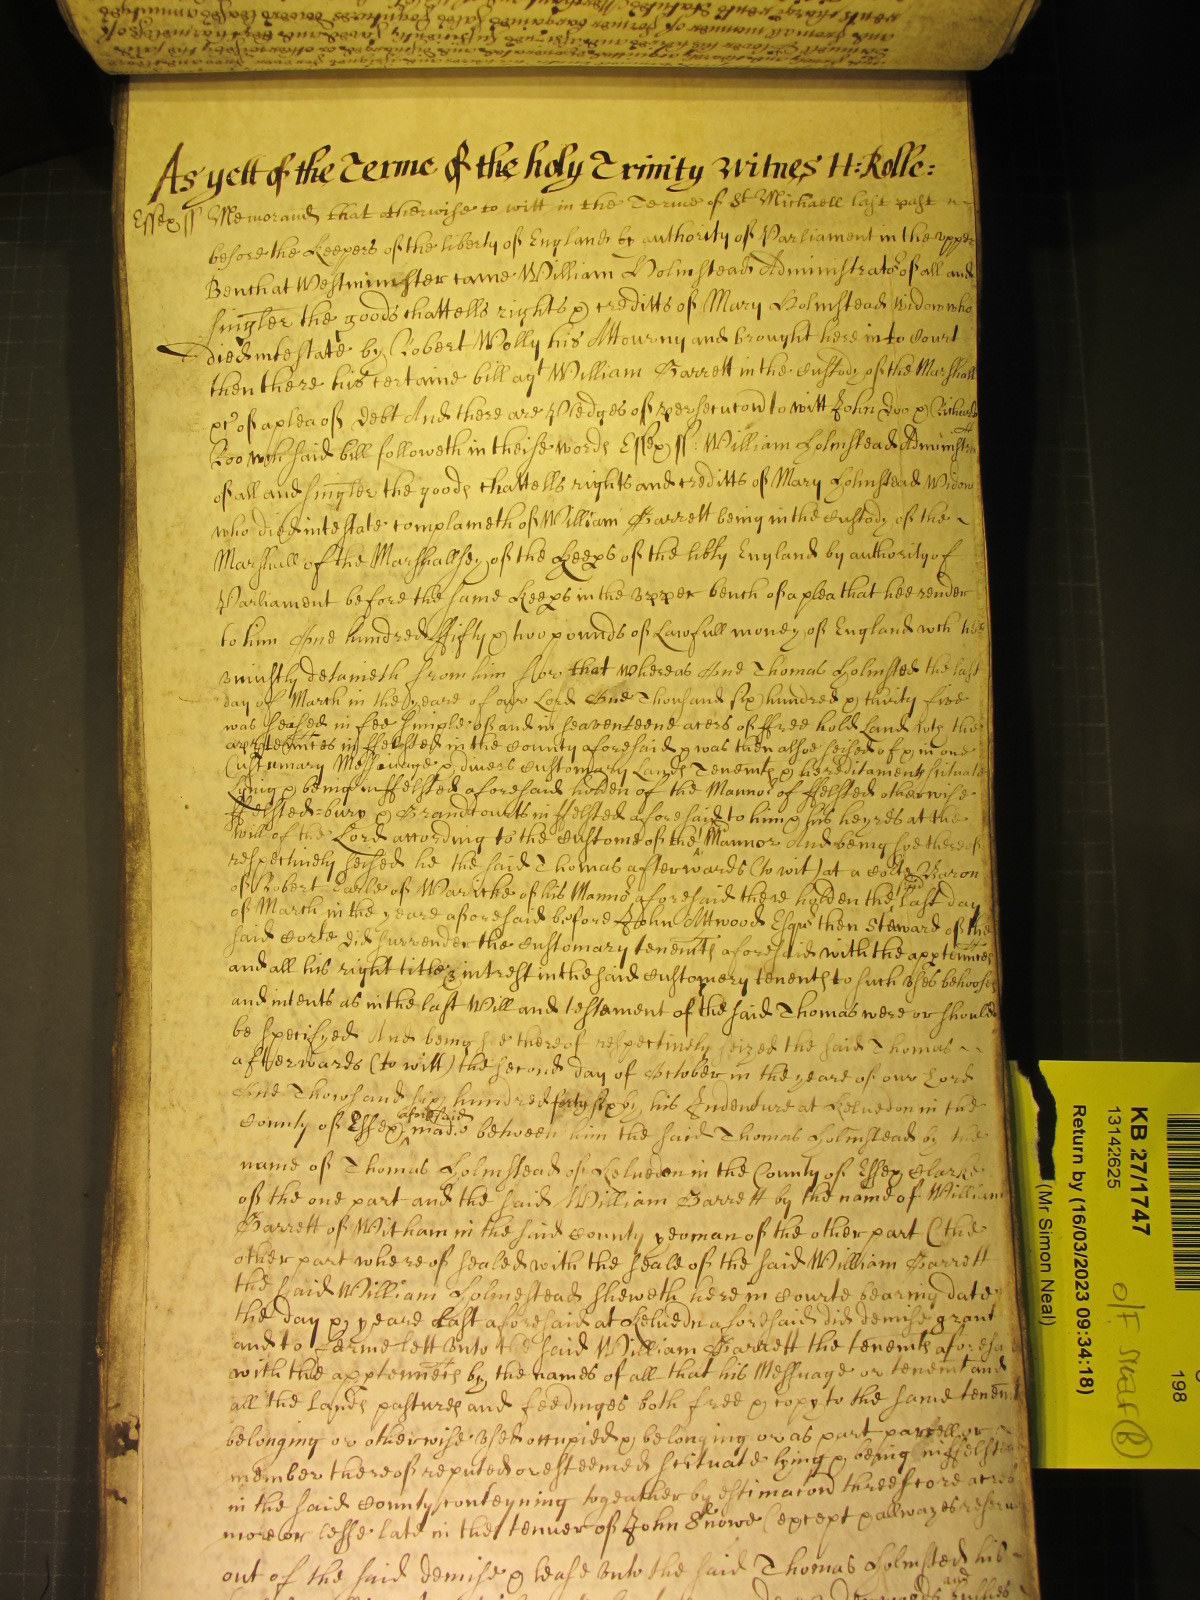 As yett of the Terme of the holy Trinity Witnes H: Rolle:
Essex ss Memorand that otherwise to witt in the Terme of St Michaell last past
before the Keepers of the liberty of England by authority of Parliament in the vpper
Bench at Westminster came William Holmstead Administrator of all and
singler the goods chattells rights & creditts of Mary Holmstead widow who
died intestate by Robert Wolly his Attourny and brought here into Court
then there his certaine bill agt William Garrett in the Custody of the Marshall
&c of a plea of debt And there are Pledges of persecucon to witt John Doo & Richard
Roo wch said bill followeth in theise words Essex ss: William Holmstead Administr
of all and singler the goods chattells rights and creditts of Mary Holmstead Widow
who died intestate complaineth of William Garrett being in the Custody of the
Marshall of the Marshallsey of the Keeps of the libty England by authority of
Parliament before the same Keeps in the vpper bench of a plea that hee render
to him One hundred ffifty & two pounds of Lawfull money of England wch hee
vniustly detaineth from him ffor that whereas One Thomas Holmsted the last
day of March in the yeare of our Lord One Thousand six hundred & thirty five
was seased in fee simple of and in seaventeene acers of ffree hold Land wth the
appurtennces in ffelsted in the County aforesaid & was then alsoe seised of & in one
Customary Messuage & divers Customary Lands Tenemts & hereditaments situate
Lying & being in ffelsted aforesaid holden of the Mannor of ffelsted otherwise
ffelsted-bury & Grandcourts in ffelsted aforesaid to him & his heyres at the
will of the Lord according to the Custome of the Mannor And being soe thereof
respectively seised he the said Thomas afterwards (to wit) at a Corte Baron
of Robert Earle of Warwicke of his Mannor aforesaid there holden the said last day
of March in the yeare aforesaid before John Attwood Esqr then Steward of the
said Corte did surrender the Customary tenemts aforesaid with the apptennces
and all his right title & intrest in the said Customery tenemts to such vses behoofes
and intents as in the last Will and testament of the said Thomas were or should
be specifyed And being soe thereof respectively seized the said Thomas
afterwards (to witt) the second day of October in the yeare of our Lord
One Thowsand six hundred forty six by his Indenture at Kelvedon in the
County of Essex aforesaid made between him the said Thomas Holmstead by the
name of Thomas Holmstead of Kelvedon in the County of Essex Clarke
of the one part and the said William Garrett by the name of William
Garrett of Witham in the said County yeoman of the other part (the
other part whereof sealed with the seale of the said William Garrett
the said William Holmestead sheweth here in Courte bearing date
the day & yeare Last aforesaid at Kelvedn aforesaid did demise grant
and to ferme lett vnto the said William Garrett the tenemts aforesa
with the apptennces by the names of all that his Messuage or tenemt and
all the Lands pastures and feedinges both free & copy to the same tenemt
belonging or otherwise vsed occupied & belonging or as part parcell or
member thereof reputed or esteemed scituate lying & being in ffelsted
in the said County conteyning togeather by estimacon threescore acres
more or lesse late in the tenuer of John Snowe (except & allwayes reserv
out of the said demise & lease vnto the said Thomas Holmsted his
KB 27/1747
13142625
Return by (16/03/2023 09:34:18)
(Mr Simon Neal)
198